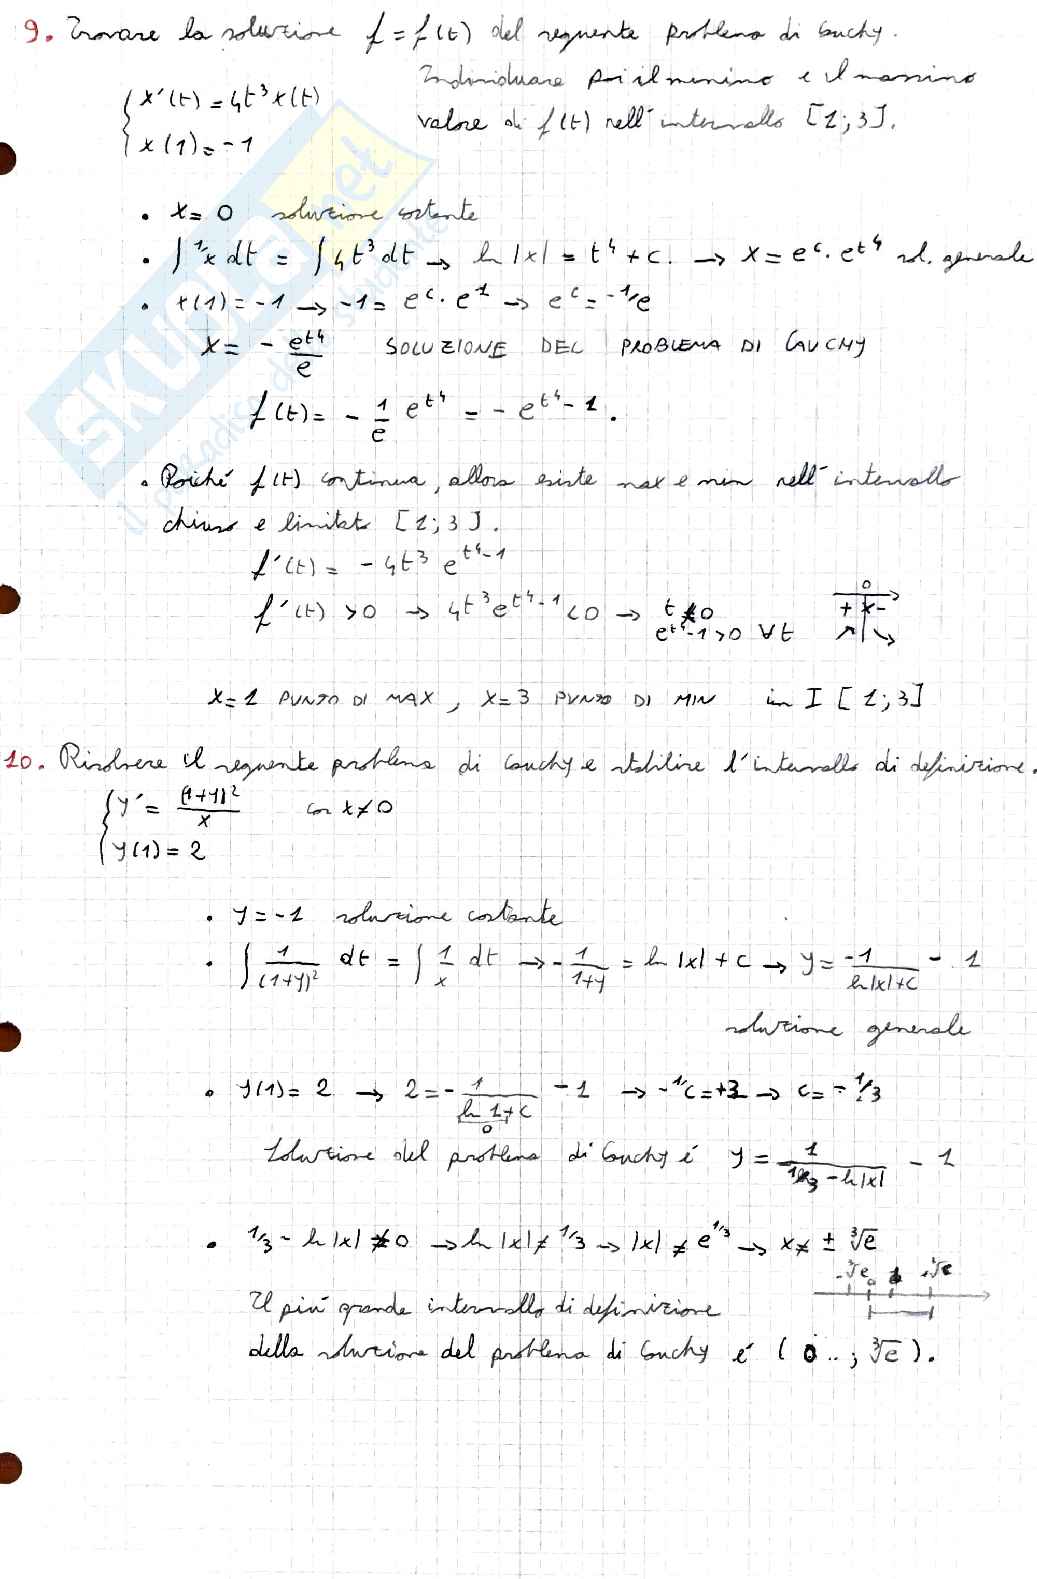 9. Trovare la soluzione f = f(t) del seguente problema di Cauchy.
Individuare poi il minimo e il massimo
{ x'(t) = 4t³x(t)
valore di f(t) nell'intervallo [1;3].
x(1) = -1
• x = 0 soluzione costante
• ∫ 1/x dt = ∫ 4t³ dt → ln |x| = t⁴ + c. → x = e^c · e^t⁴ sol. generale
• x(1) = -1 → -1 = e^c · e^1 → e^c = -1/e
x = - e^t⁴/e SOLUZIONE DEL PROBLEMA DI CAUCHY
f(t) = - 1/e e^t⁴ = - e^t⁴-1.
• Poiché f(t) continua, allora esiste max e min nell'intervallo
chiuso e limitato [1;3].
f'(t) = - 4t³ e^t⁴-1
f'(t) > 0 → 4t³e^t⁴-1 < 0 → t < 0
e^t⁴-1 > 0 ∀t
0
+ x -
x = 1 PUNTO DI MAX, x = 3 PUNTO DI MIN in I [1;3]
10. Risolvere il seguente problema di Cauchy e stabilire l'intervallo di definizione.
{ y' = (1+y)²/x con x ≠ 0
y(1) = 2
• y = -1 soluzione costante
• ∫ 1/(1+y)² dt = ∫ 1/x dt → - 1/1+y = ln |x| + c → y = -1/ln|x|+c - 1
soluzione generale
• y(1) = 2 → 2 = - 1/ln 1 + c - 1 → -1/c = +3 → c = -1/3
0
Soluzione del problema di Cauchy é y = 1/1/3 - ln|x| - 1
• 1/3 - ln |x| ≠ 0 → ln |x| ≠ 1/3 → |x| ≠ e^1/3 → x ≠ ± ∛e
-∛e 0 1 ∛e
Il più grande intervallo di definizione
della soluzione del problema di Cauchy é (0..; ∛e).
SKUOLA.net
il paradiso dello studente